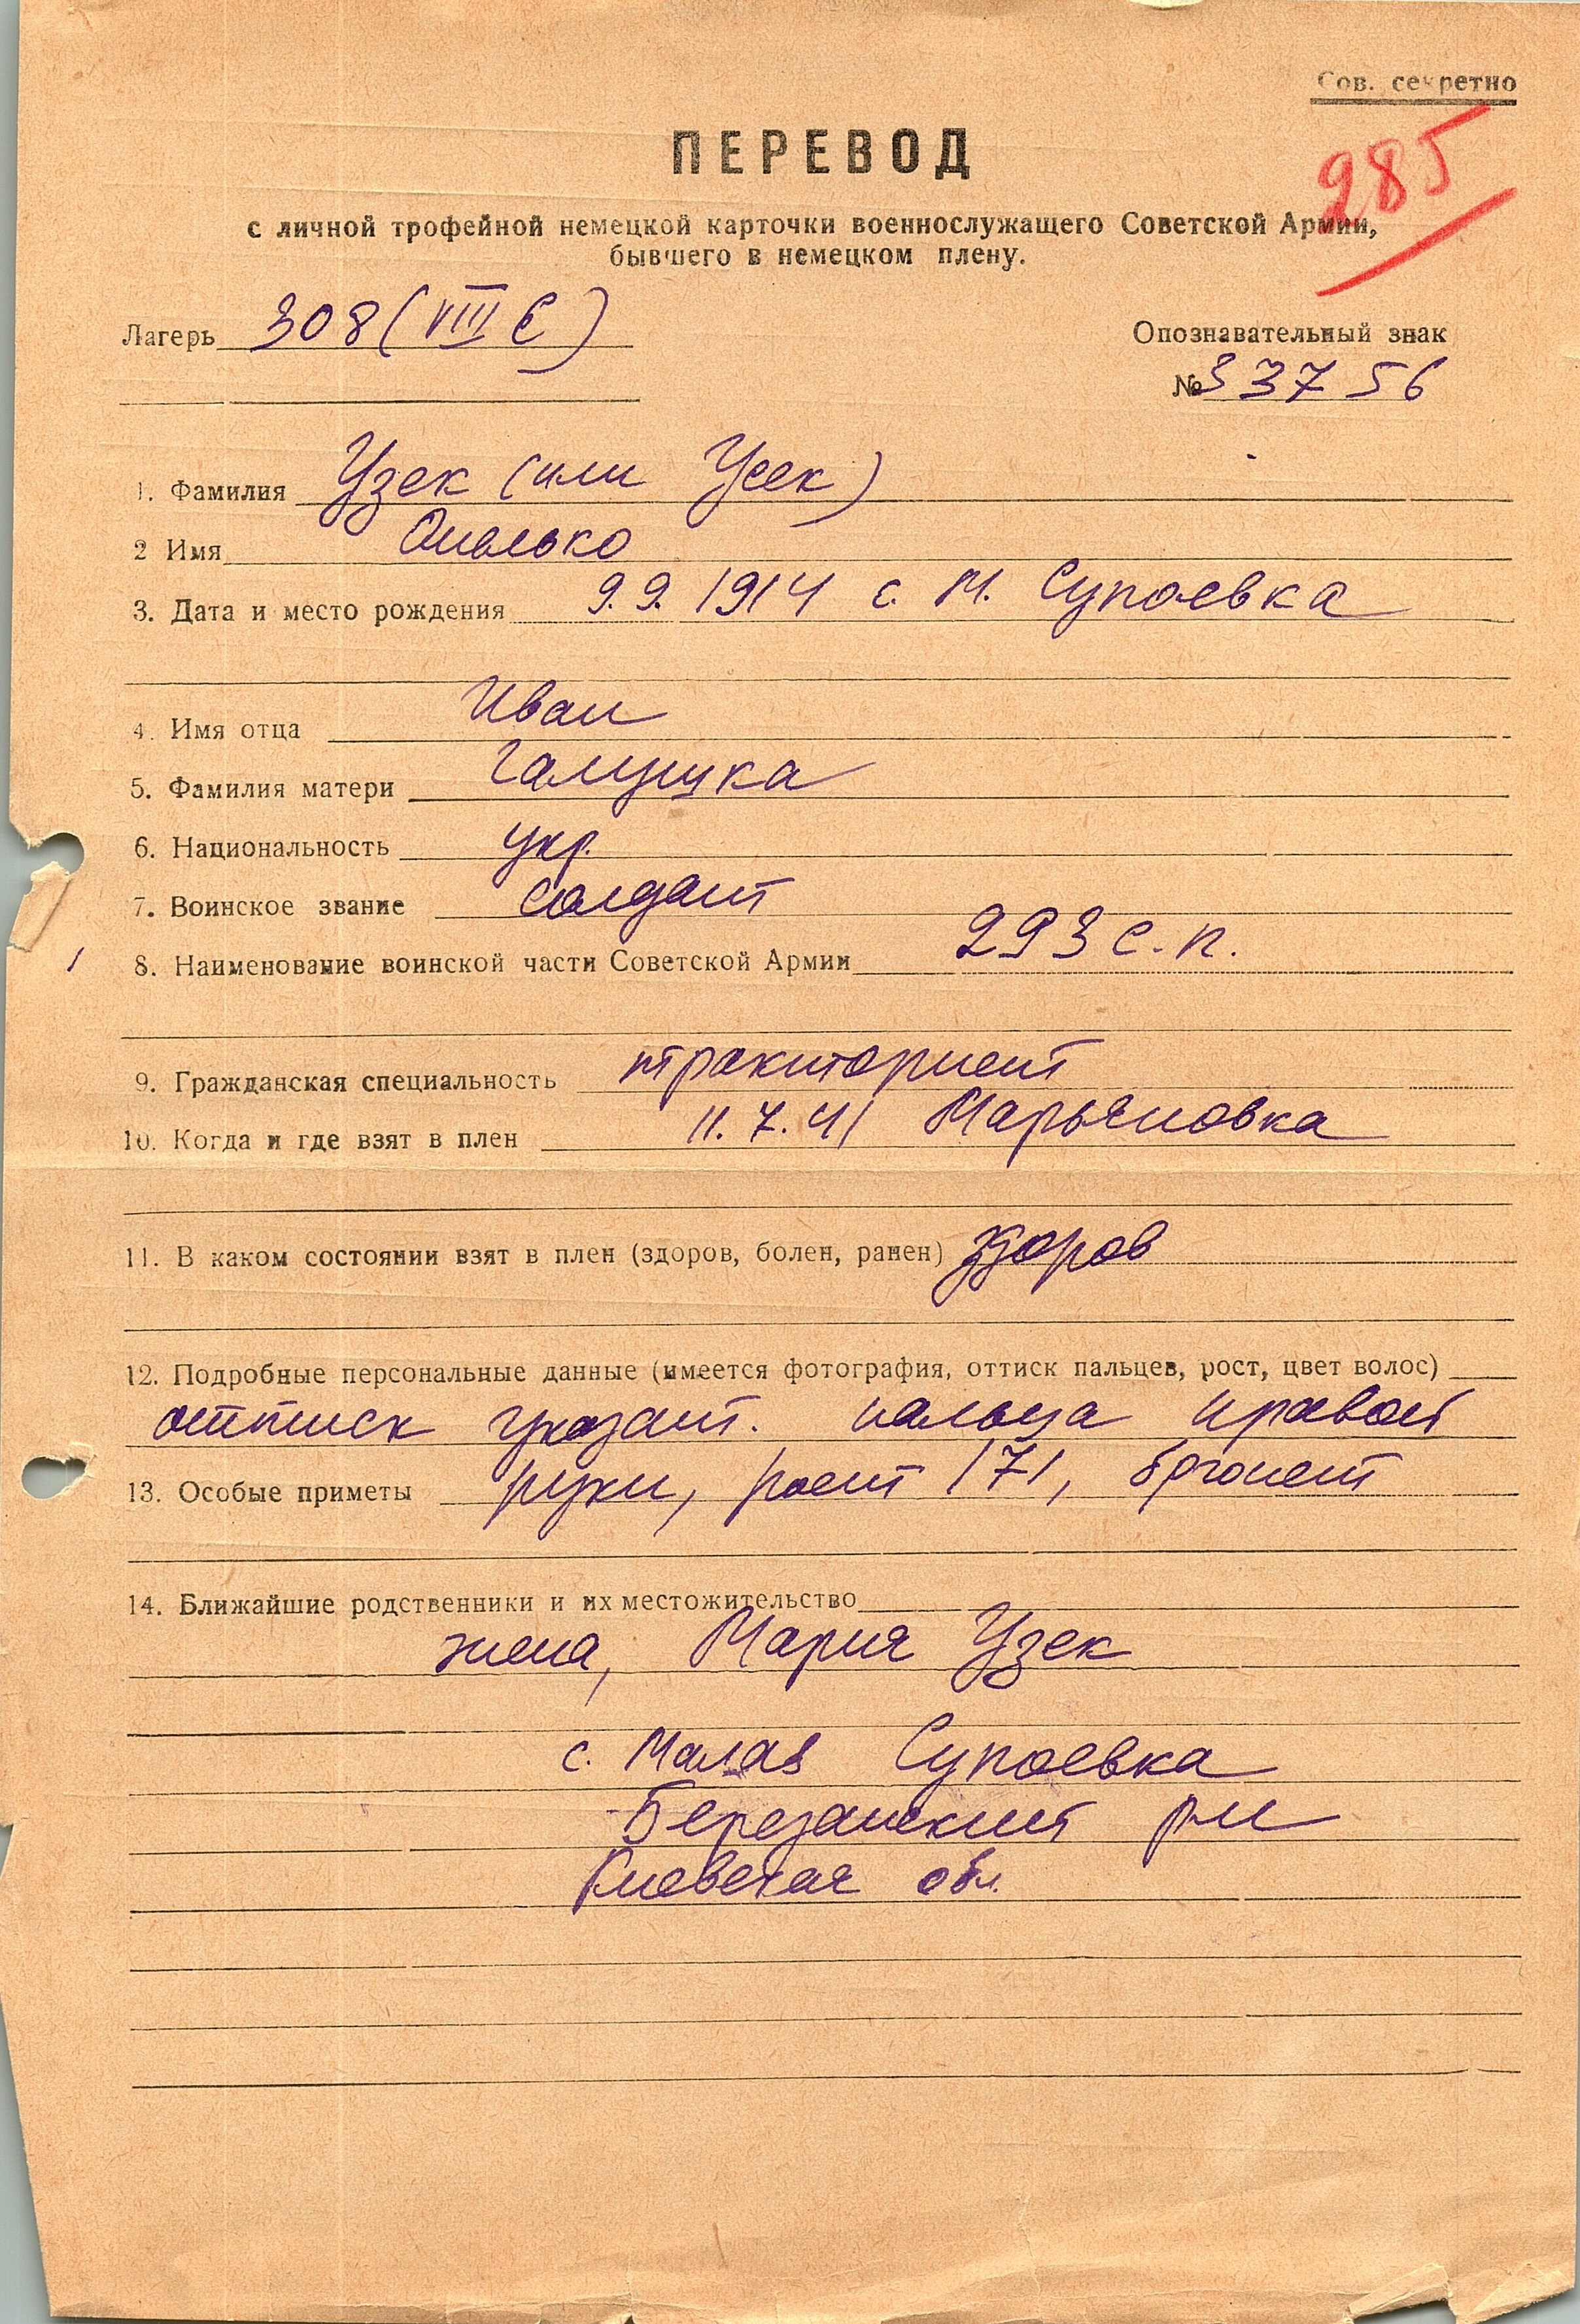 Сов. секретно
285
ПЕРЕВОД
с личной трофейной немецкой карточки военнослужащего Советской Армии,
бывшего в немецком плену.
Лагерь 308 (VIII E)
Опознавательный знак
№ 33756
1. Фамилия Узек (или Усек)
2 Имя Опалько
3. Дата и место рождения 9.9.1914 с. М. Супоевка
4. Имя отца Иван
5. Фамилия матери Галушка
6. Национальность укр.
7. Воинское звание солдат
8. Наименование воинской части Советской Армии 293 с.п.
9. Гражданская специальность тракторист
10. Когда и где взят в плен 11.7.41 Марьяновка
11. В каком состоянии взят в плен (здоров, болен, ранен) здоров
12. Подробные персональные данные (имеется фотография, оттиск пальцев, рост, цвет волос)
оттиск указат. пальца правой
13. Особые приметы руки, рост 171, брюнет
14. Ближайшие родственники и их местожительство
жена, Мария Узек
с. Малая Супоевка
Березанский р-н
Киевская обл.